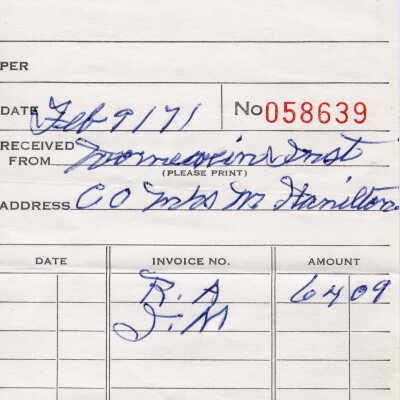 PER
DATE Feb 9/71 No 058639
RECEIVED FROM Inst
(PLEASE PRINT)
ADDRESS CO Mrs M Hamilton
DATE INVOICE NO. AMOUNT
R. A 64 09
J. M